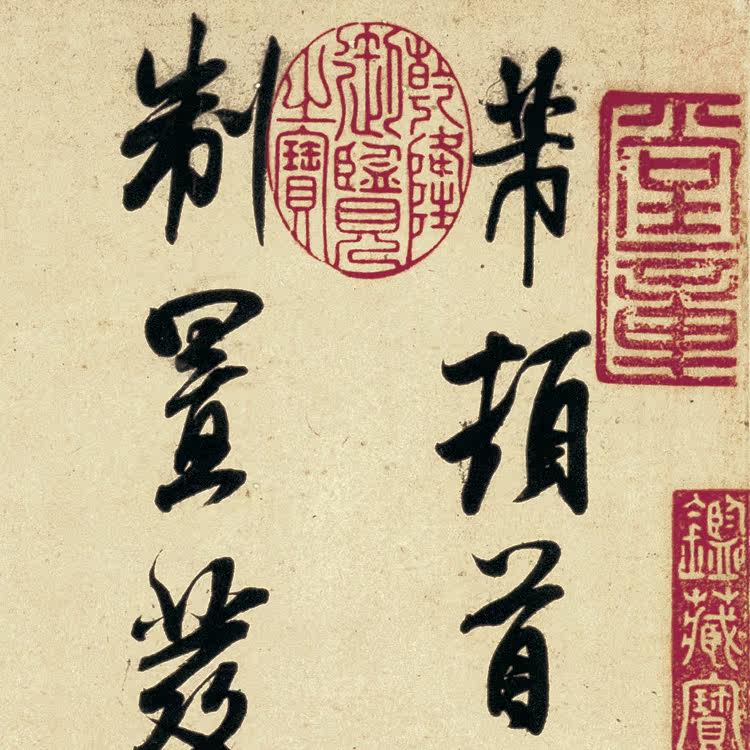 鑑藏寶
芾頓首
乾隆
御覽
之寶
制置發